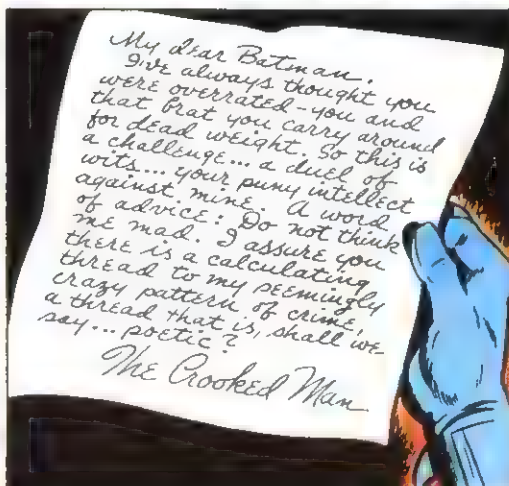 My dear Batman.
I've always thought you
were overrated - you and
that brat you carry around
for dead weight. So this is
a challenge... a duel of
wits... your puny intellect
against mine. A word
of advice: Do not think
me mad. I assure you
there is a calculating
thread to my seemingly
crazy pattern of crime,
a thread that is, shall we
say... poetic?
The Crooked Man